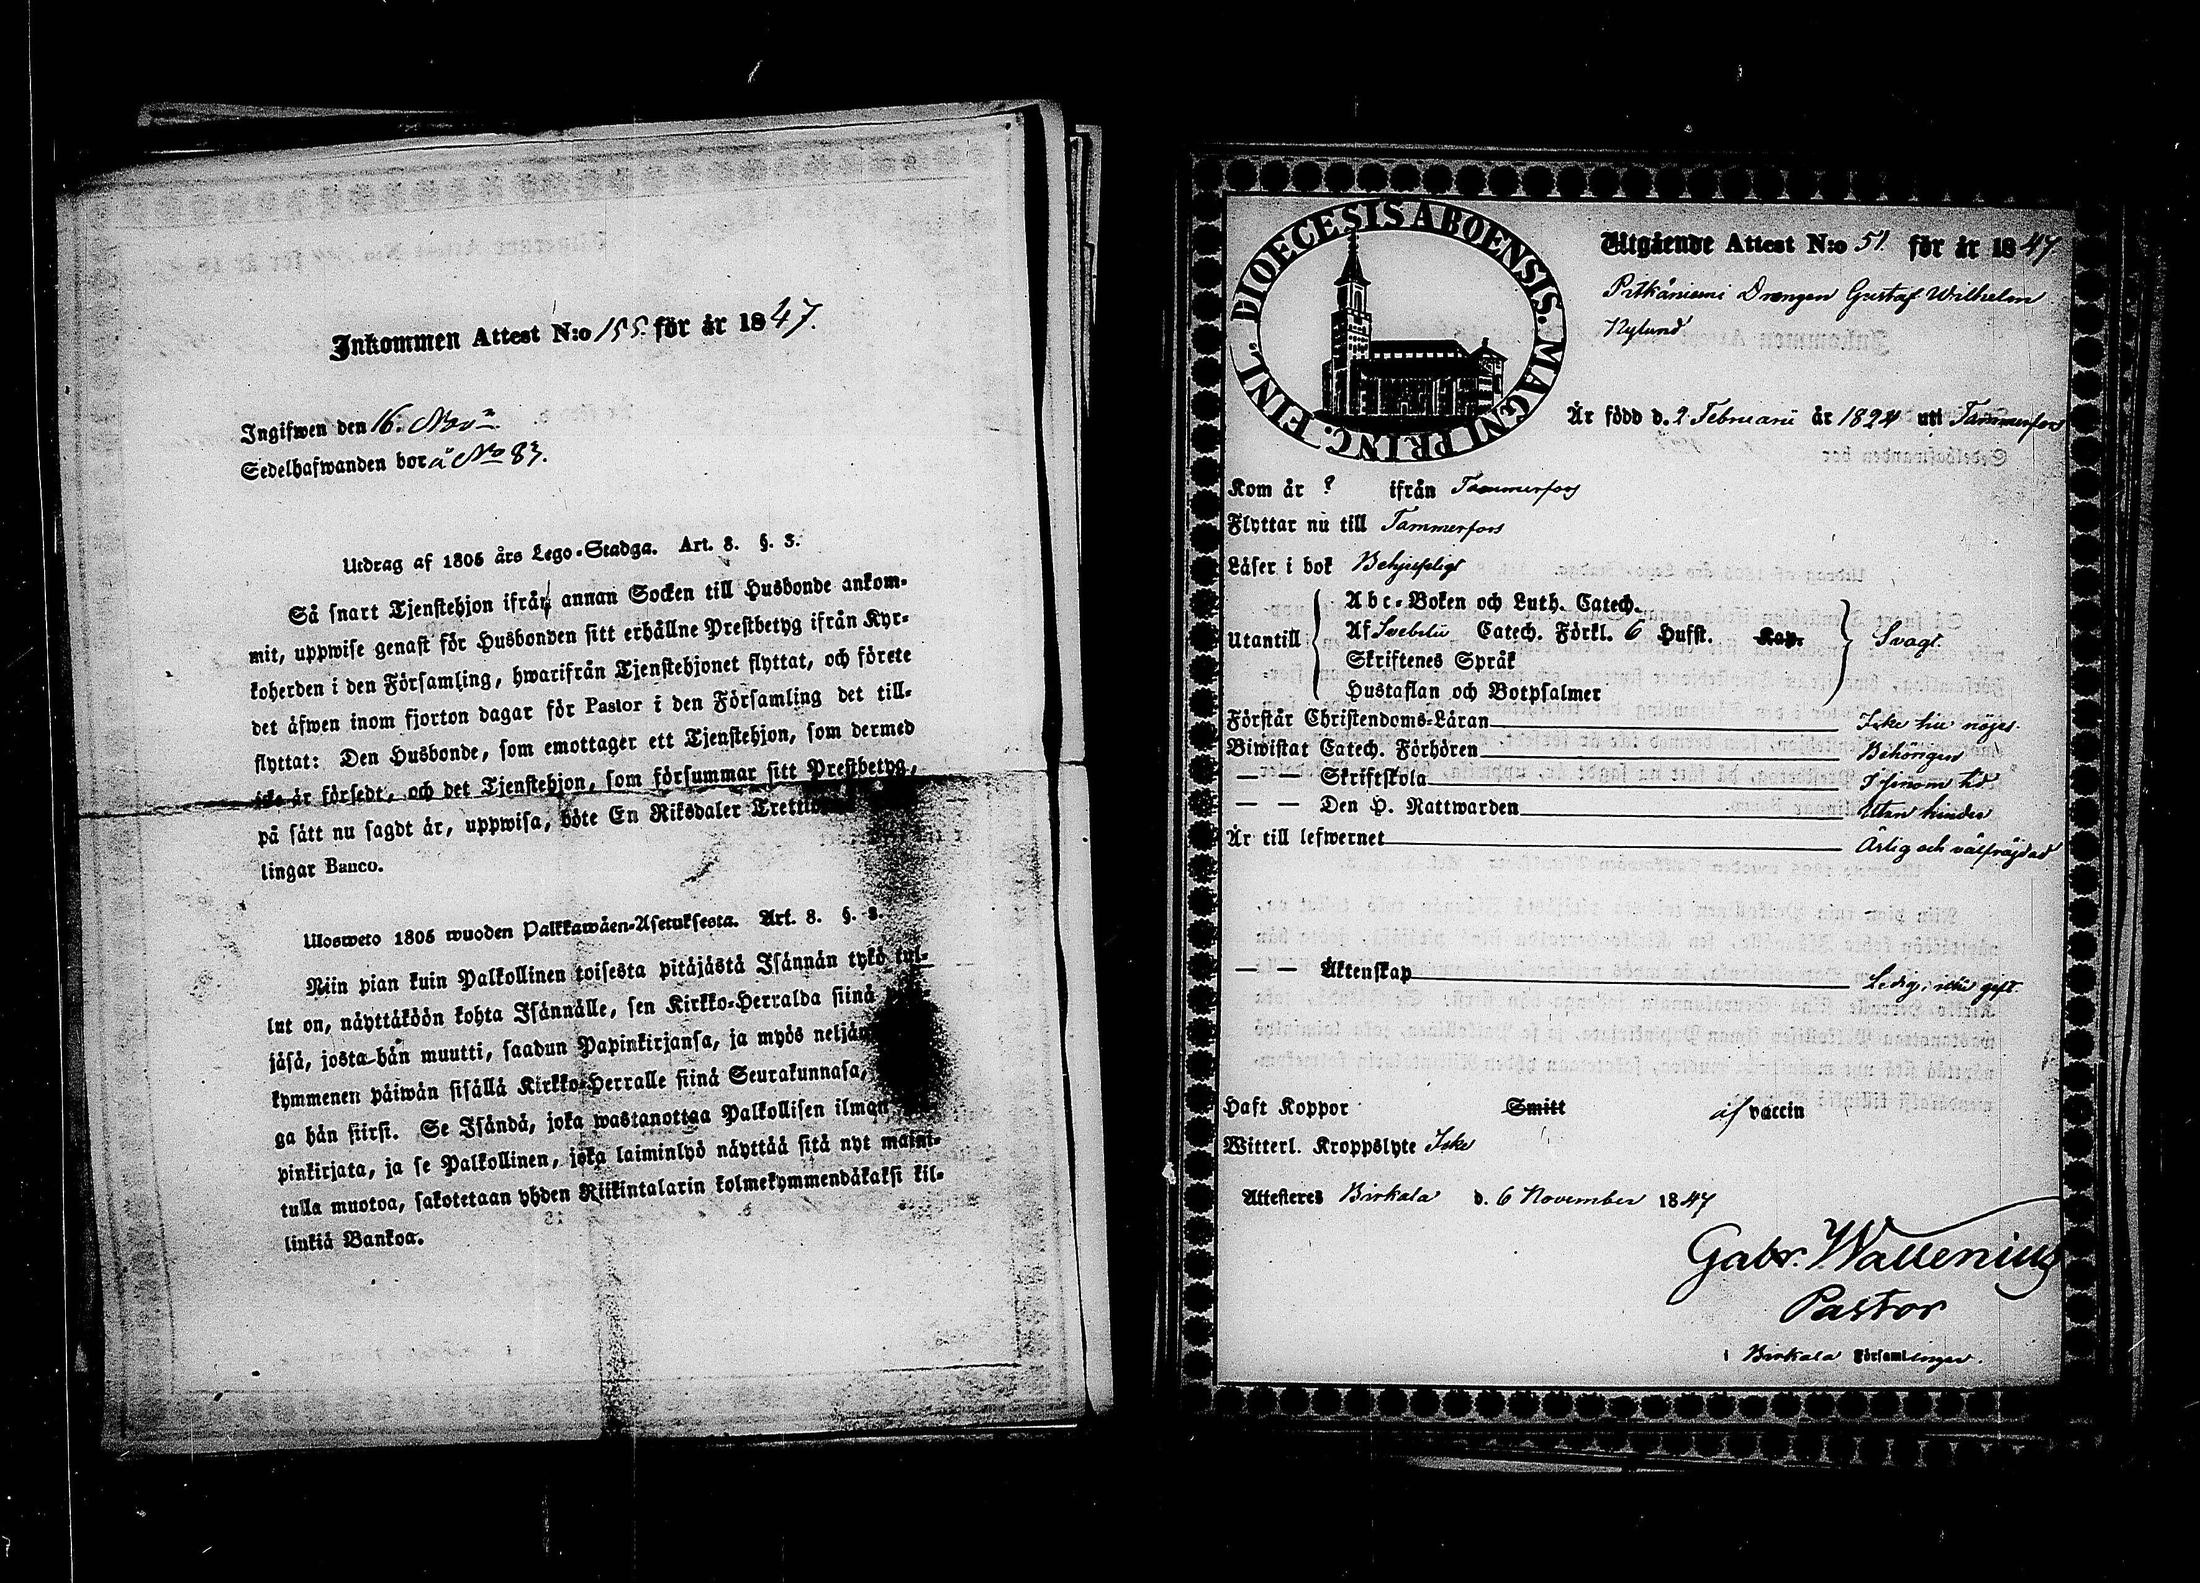 Inkommen Attest N:o 155. för år 1847.
Ingifwen den 16. Nov:
Sedelhafwanden bor å No 83.
Utdrag af 1805 års Lego-Stadga. Art. 8. §. 3.
Så snart Tjenstehjon ifrån annan Socken till Husbonde ankom-
mit, uppwise genast för Husbonden sitt erhållne Prestbetyg ifrån Kyr-
koherden i den Församling, hwarifrån Tjenstehjonet flyttat, och förete
det äfwen inom fjorton dagar för Pastor i den Församling det till-
flyttat: Den Husbonde, som emottager ett Tjenstehjon, som dermed
icke är försedt, och det Tjenstehjon, som försummar sitt Prestbetyg,
på sätt nu sagdt är, uppwisa, böte En Riksdaler
lingar Banco.
Ulosweto 1805 wuoden Palkkawäen-Asetuksesta. Art. 8. §. 3.
Niin pian kuin Palkollinen toisesta pitäjästä Isännän tykö tul-
lut on, näyttäköön kohta Isännälle, sen Kirkko-Herralda siinä
jäsä, josta hän muutti, saadun Papinkirjansa, ja myös neljän
kymmenen päiwän sisällä Kirkko-Herralle siinä Seurakunnasa,
ga hän siirsi. Se Isändä, joka wastanottaa Palkollisen ilman
pinkirjata, ja se Palkollinen, joka laiminlyö näyttää sitä nyt maini-
tulla muotoa, sakotetaan yhden Riikintalarin kolmekymmendäkaksi kil-
linkiä Bankoa.
DIOECESIS ABOENSIS. MAGNI PRINC. FINL.
Utgående Attest N:o 51 för år 1847
Pitkäniemi Drengen Gustaf Wilhelm
Nylund
Är född d. 2 Februarii år 1824 uti Tammerfors
Kom år ? ifrån Tammerfors
Flyttar nu till Tammerfors
Läser i bok Behjelpligt
Utantill
Abc-Boken och Luth. Catech.
Af Svebelii Catech. Förkl. 6 Hufst. Kap.
Skriftenes Språk
Hustaflan och Botpsalmer
Svagt.
Förstår Christendoms-Läran Icke till nöjes.
Biwistat Catech. Förhören Behörigen
— — Skriftskola
— — Den H. Nattwarden Utan hinder
Är till lefwernet Ärlig och välfräjdad
— — Äktenskap Ledig, icke gift.
Haft Koppor Smitt af vaccin
Witterl. Kroppslyte Icke
Attesteres Birkala d. 6 November 1847
Gabr. Wallenius
Pastor
i Birkala Församlingar.